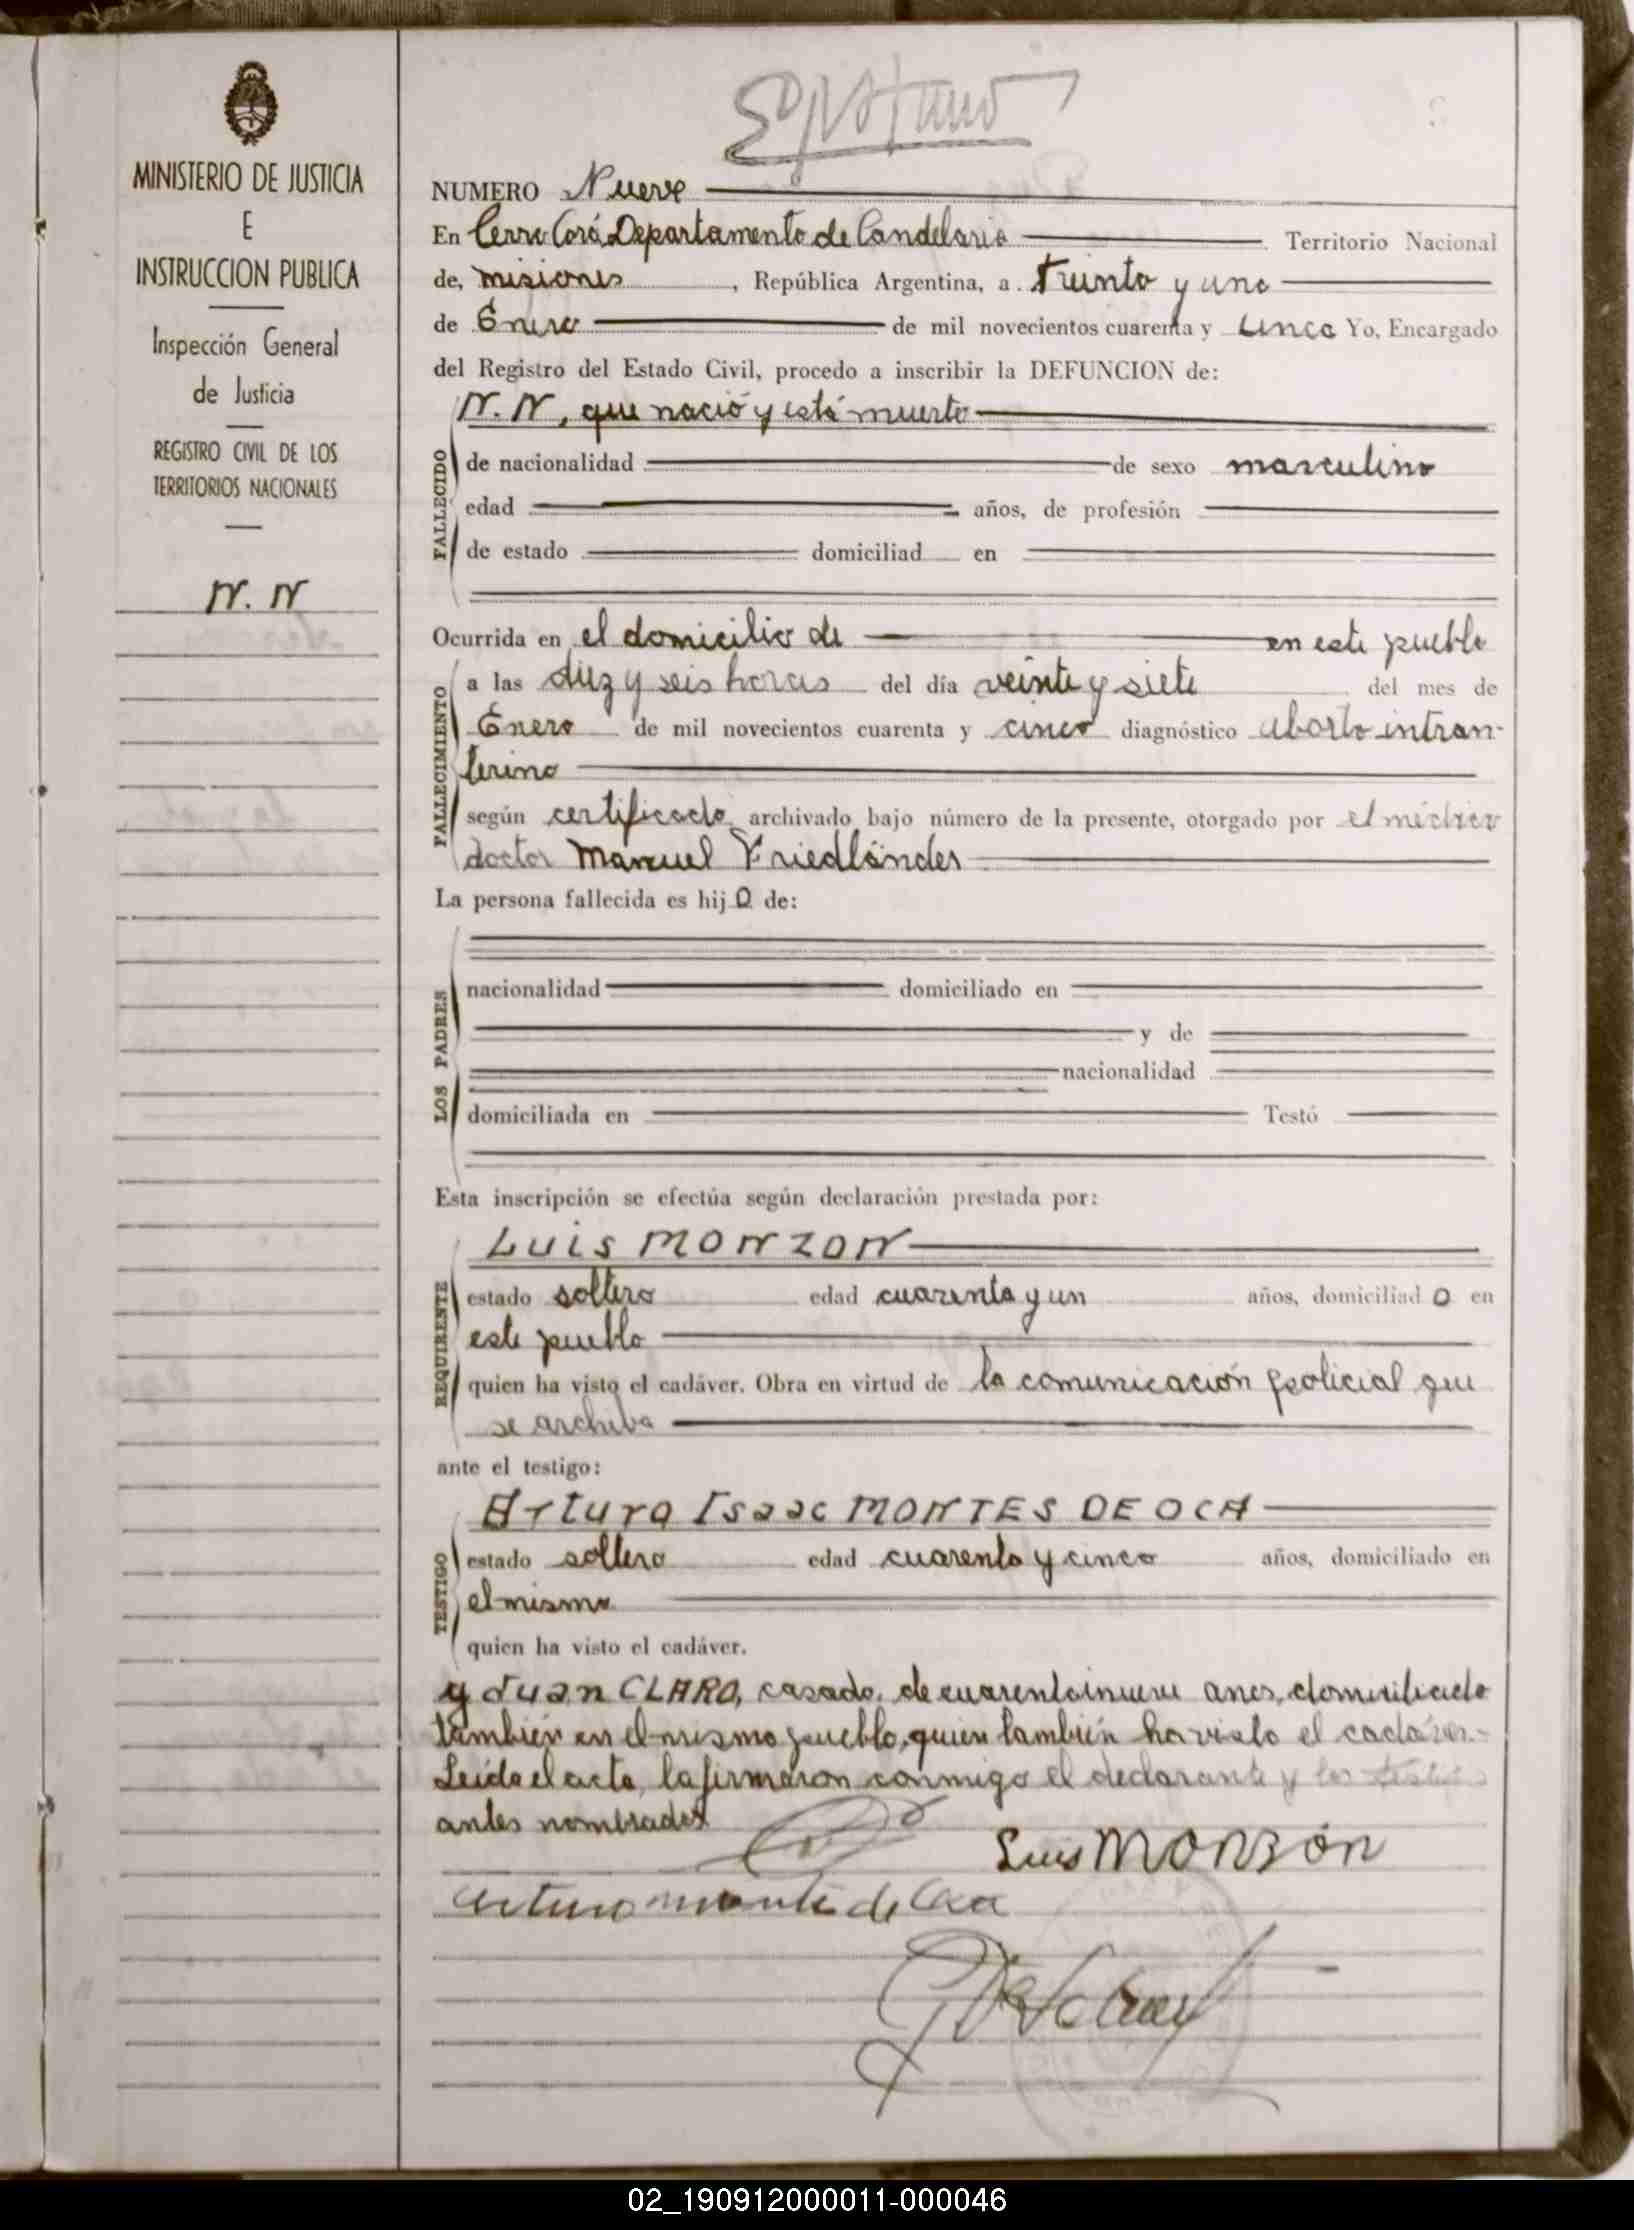 MINISTERIO DE JUSTICIA
E
INSTRUCCION PUBLICA
Inspección General
de Justicia
REGISTRO CIVIL DE LOS
TERRITORIOS NACIONALES
N. N
NUMERO Nueve
En Cerro Corá Departamento de Candelaria Territorio Nacional
de, misiones, República Argentina, a treinta y uno
de Enero de mil novecientos cuarenta y cinco Yo, Encargado
del Registro del Estado Civil, procedo a inscribir la DEFUNCION de:
N. N, que nació y está muerto
FALLECIDO
de nacionalidad de sexo masculino
edad años, de profesión
de estado domiciliad en
Ocurrida en el domicilio de en este pueblo
FALLECIMIENTO
a las diez y seis horas del día veinte y siete del mes de
Enero de mil novecientos cuarenta y cinco diagnóstico aborto intran-
terino
según certificado archivado bajo número de la presente, otorgado por el médico
doctor Manuel Friedländer
La persona fallecida es hijo de:
LOS PADRES
nacionalidad domiciliado en
y de
nacionalidad
domiciliada en Testó
Esta inscripción se efectúa según declaración prestada por:
REQUIRENTE
Luis MONZON
estado soltero edad cuarenta y un años, domiciliado en
este pueblo
quien ha visto el cadáver. Obra en virtud de la comunicación policial que
se archiva
ante el testigo:
TESTIGO
Arturo Isaac MONTES DE OCA
estado soltero edad cuarenta y cinco años, domiciliado en
el mismo
quien ha visto el cadáver.
y Juan CLARO, casado, de cuarentainueve anos, domiciliado
también en el mismo pueblo, quien también ha visto el cadáver.-
Leida el acta, la firmaron conmigo el declarante y los testigos
antes nombrados
Luis MONZón
Arturo monte de Oca
02_190912000011-000046